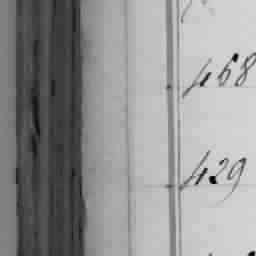 468
429